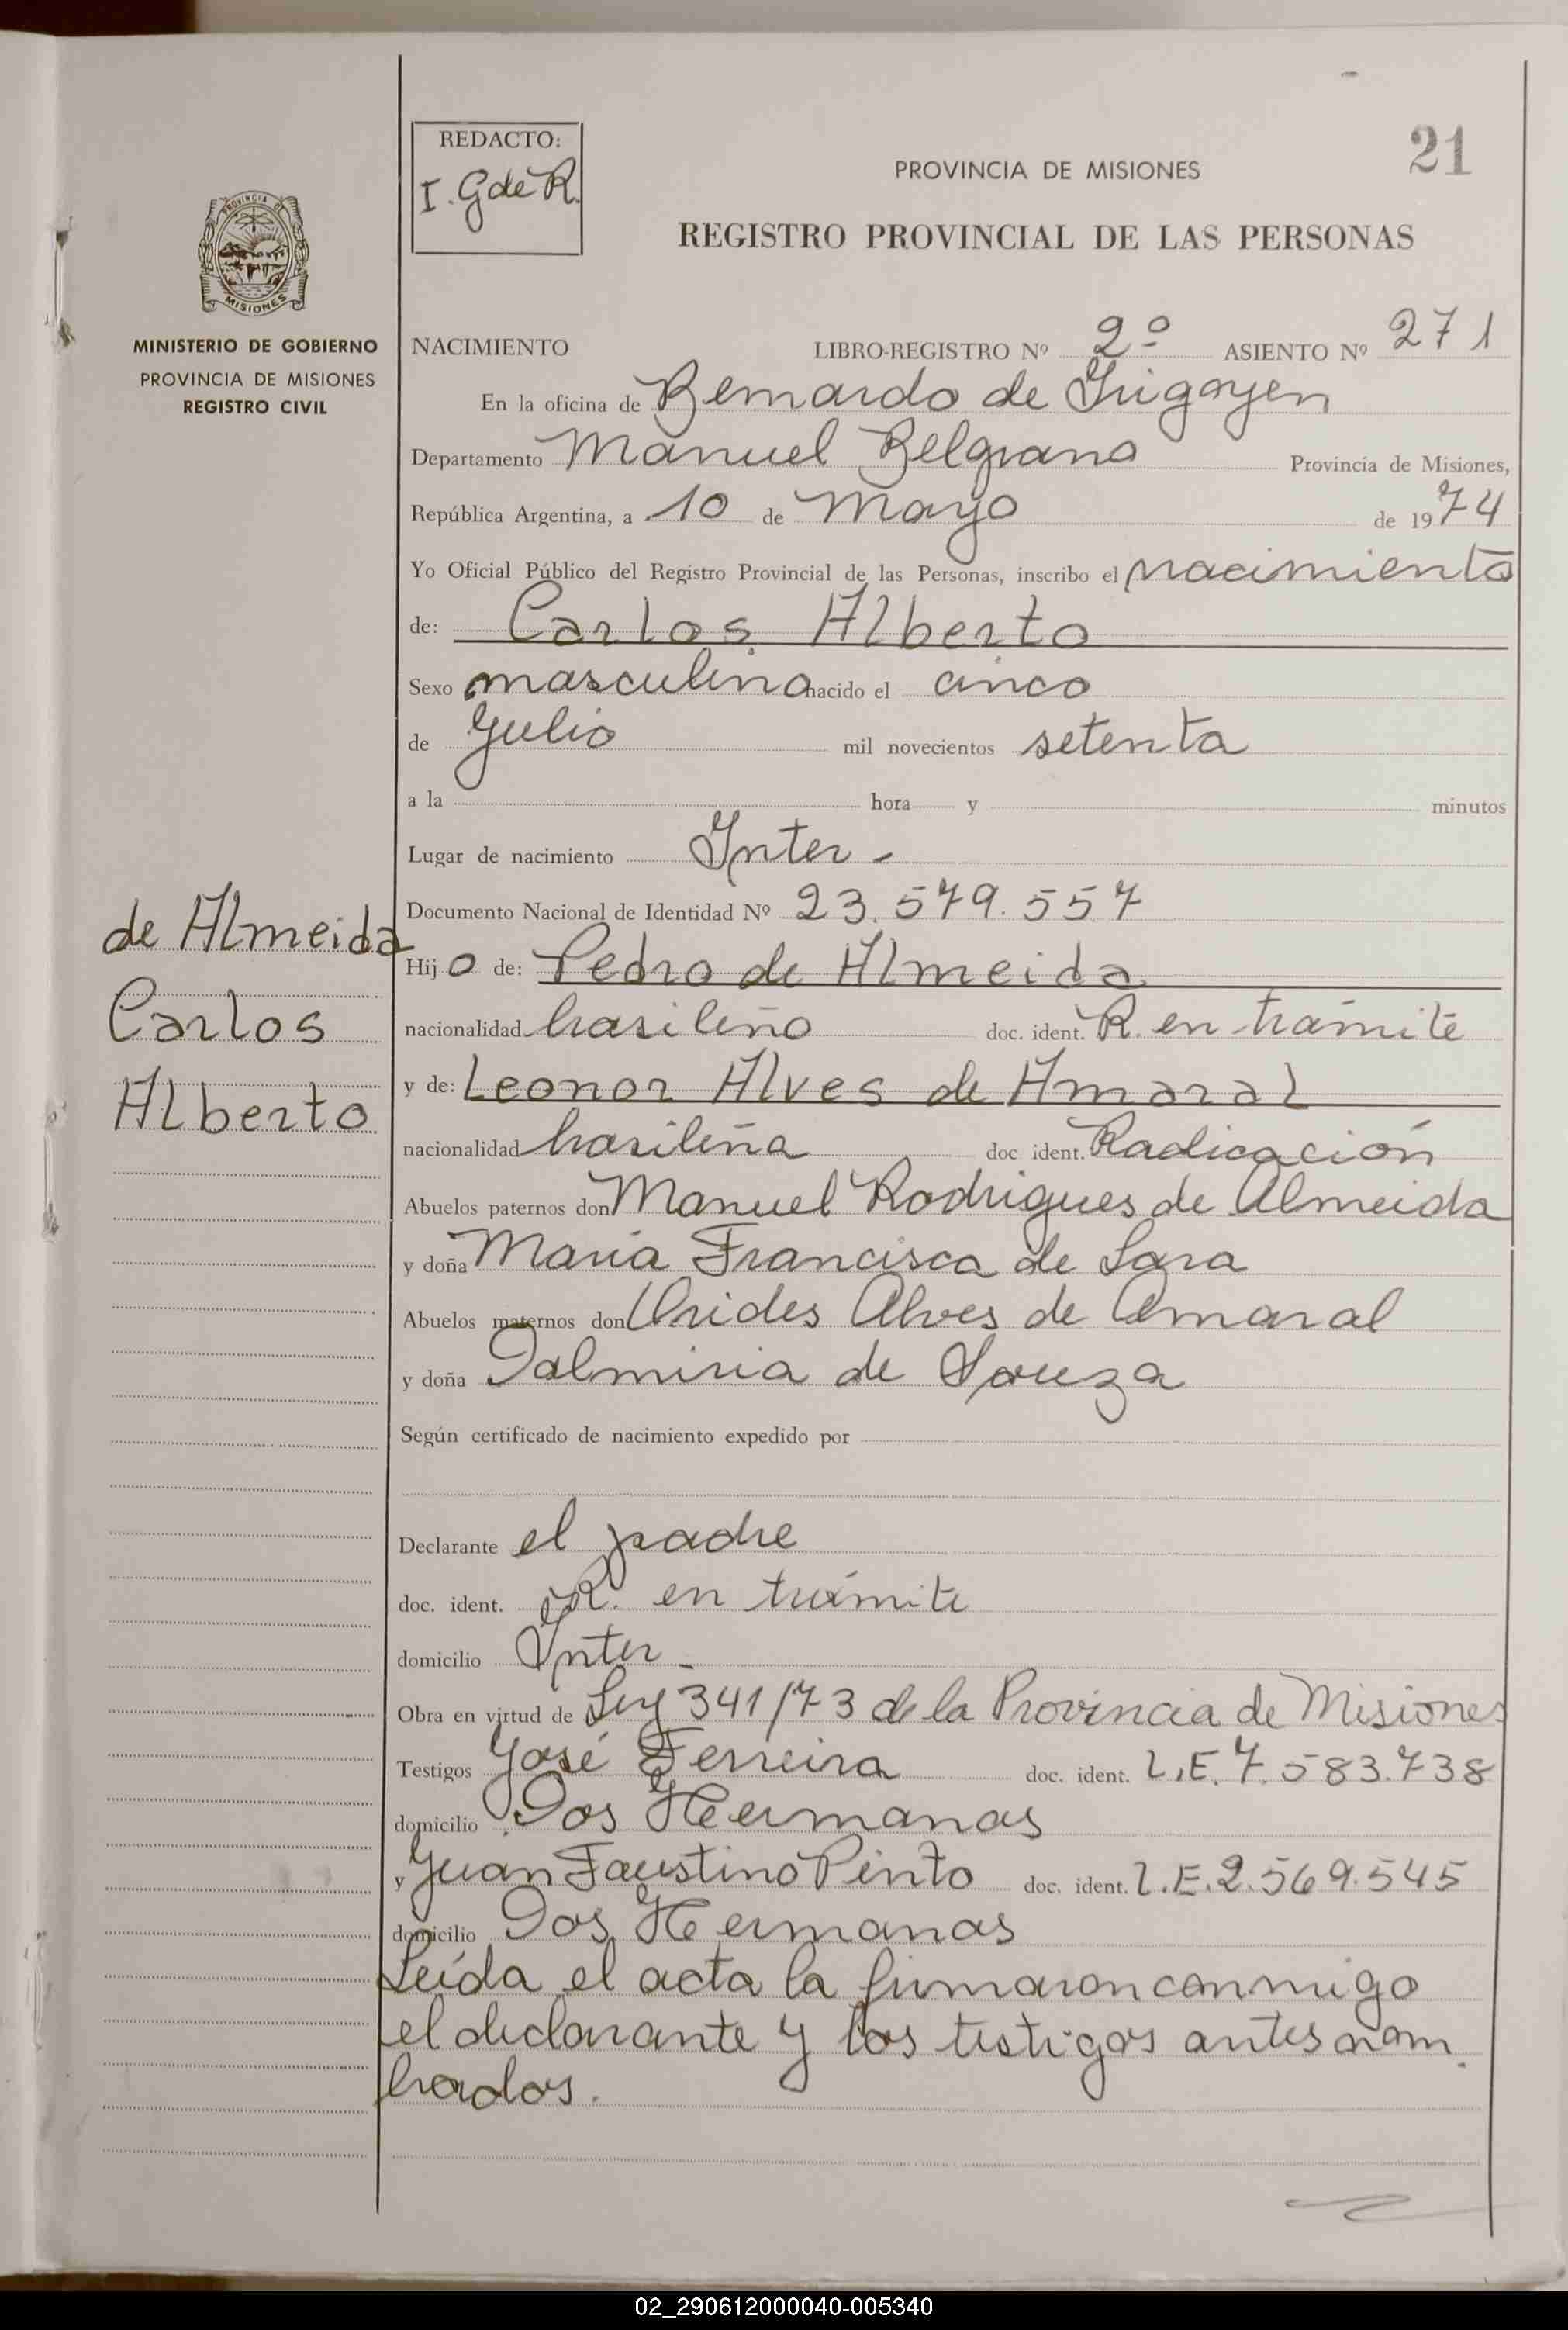 REDACTO:
I. G de R.
21
PROVINCIA DE MISIONES
REGISTRO PROVINCIAL DE LAS PERSONAS
PROVINCIA DE
MISIONES
MINISTERIO DE GOBIERNO
PROVINCIA DE MISIONES
REGISTRO CIVIL
NACIMIENTO LIBRO-REGISTRO Nº 2º ASIENTO Nº 271
En la oficina de Bernardo de Irigoyen
Departamento Manuel Belgrano Provincia de Misiones,
República Argentina, a 10 de Mayo de 1974
Yo Oficial Público del Registro Provincial de las Personas, inscribo el nacimiento
de: Carlos Alberto
Sexo masculino nacido el cinco
de Julio mil novecientos setenta
a la hora y minutos
Lugar de nacimiento Inter -
Documento Nacional de Identidad Nº 23.579.557
de Almeida
Carlos
Alberto
Hijo de: Pedro de Almeida
nacionalidad brasileño doc. ident. R. en trámite
y de: Leonor Alves de Amaral
nacionalidad brasileña doc ident. Radicación
Abuelos paternos don Manuel Rodrigues de Almeida
y doña María Francisca de Lara
Abuelos maternos don Urides Alves de Amaral
y doña Palmiria de Souza
Según certificado de nacimiento expedido por
Declarante el padre
doc. ident. R. en trámite
domicilio Inter -
Obra en virtud de Ley 341/73 de la Provincia de Misiones
Testigos José Ferreira doc. ident. L.E. 7.583.738
domicilio Dos Hermanas
y Juan Faustino Pinto doc. ident. L.E. 2.569.545
domicilio Dos Hermanas
Leída el acta la firmaron conmigo
el declarante y los testigos antes nom.
brados.
02_290612000040-005340